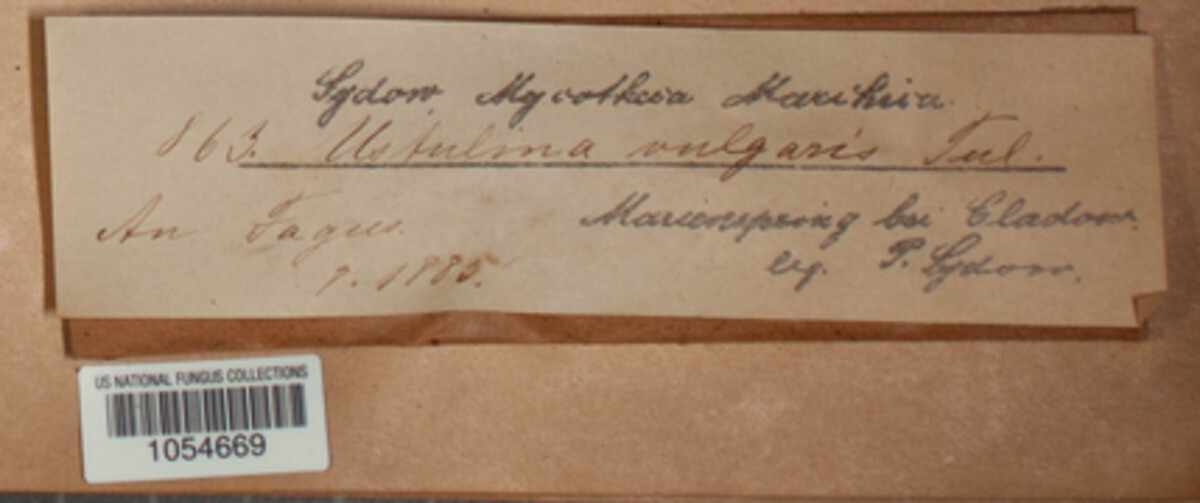 Sydow, Mycotheca Marchica.
863. Ustulina vulgaris Tul.
An Fagus.
Marienspring bei Cladow.
7. 1885.
leg. P. Sydow.
US NATIONAL FUNGUS COLLECTIONS
1054669